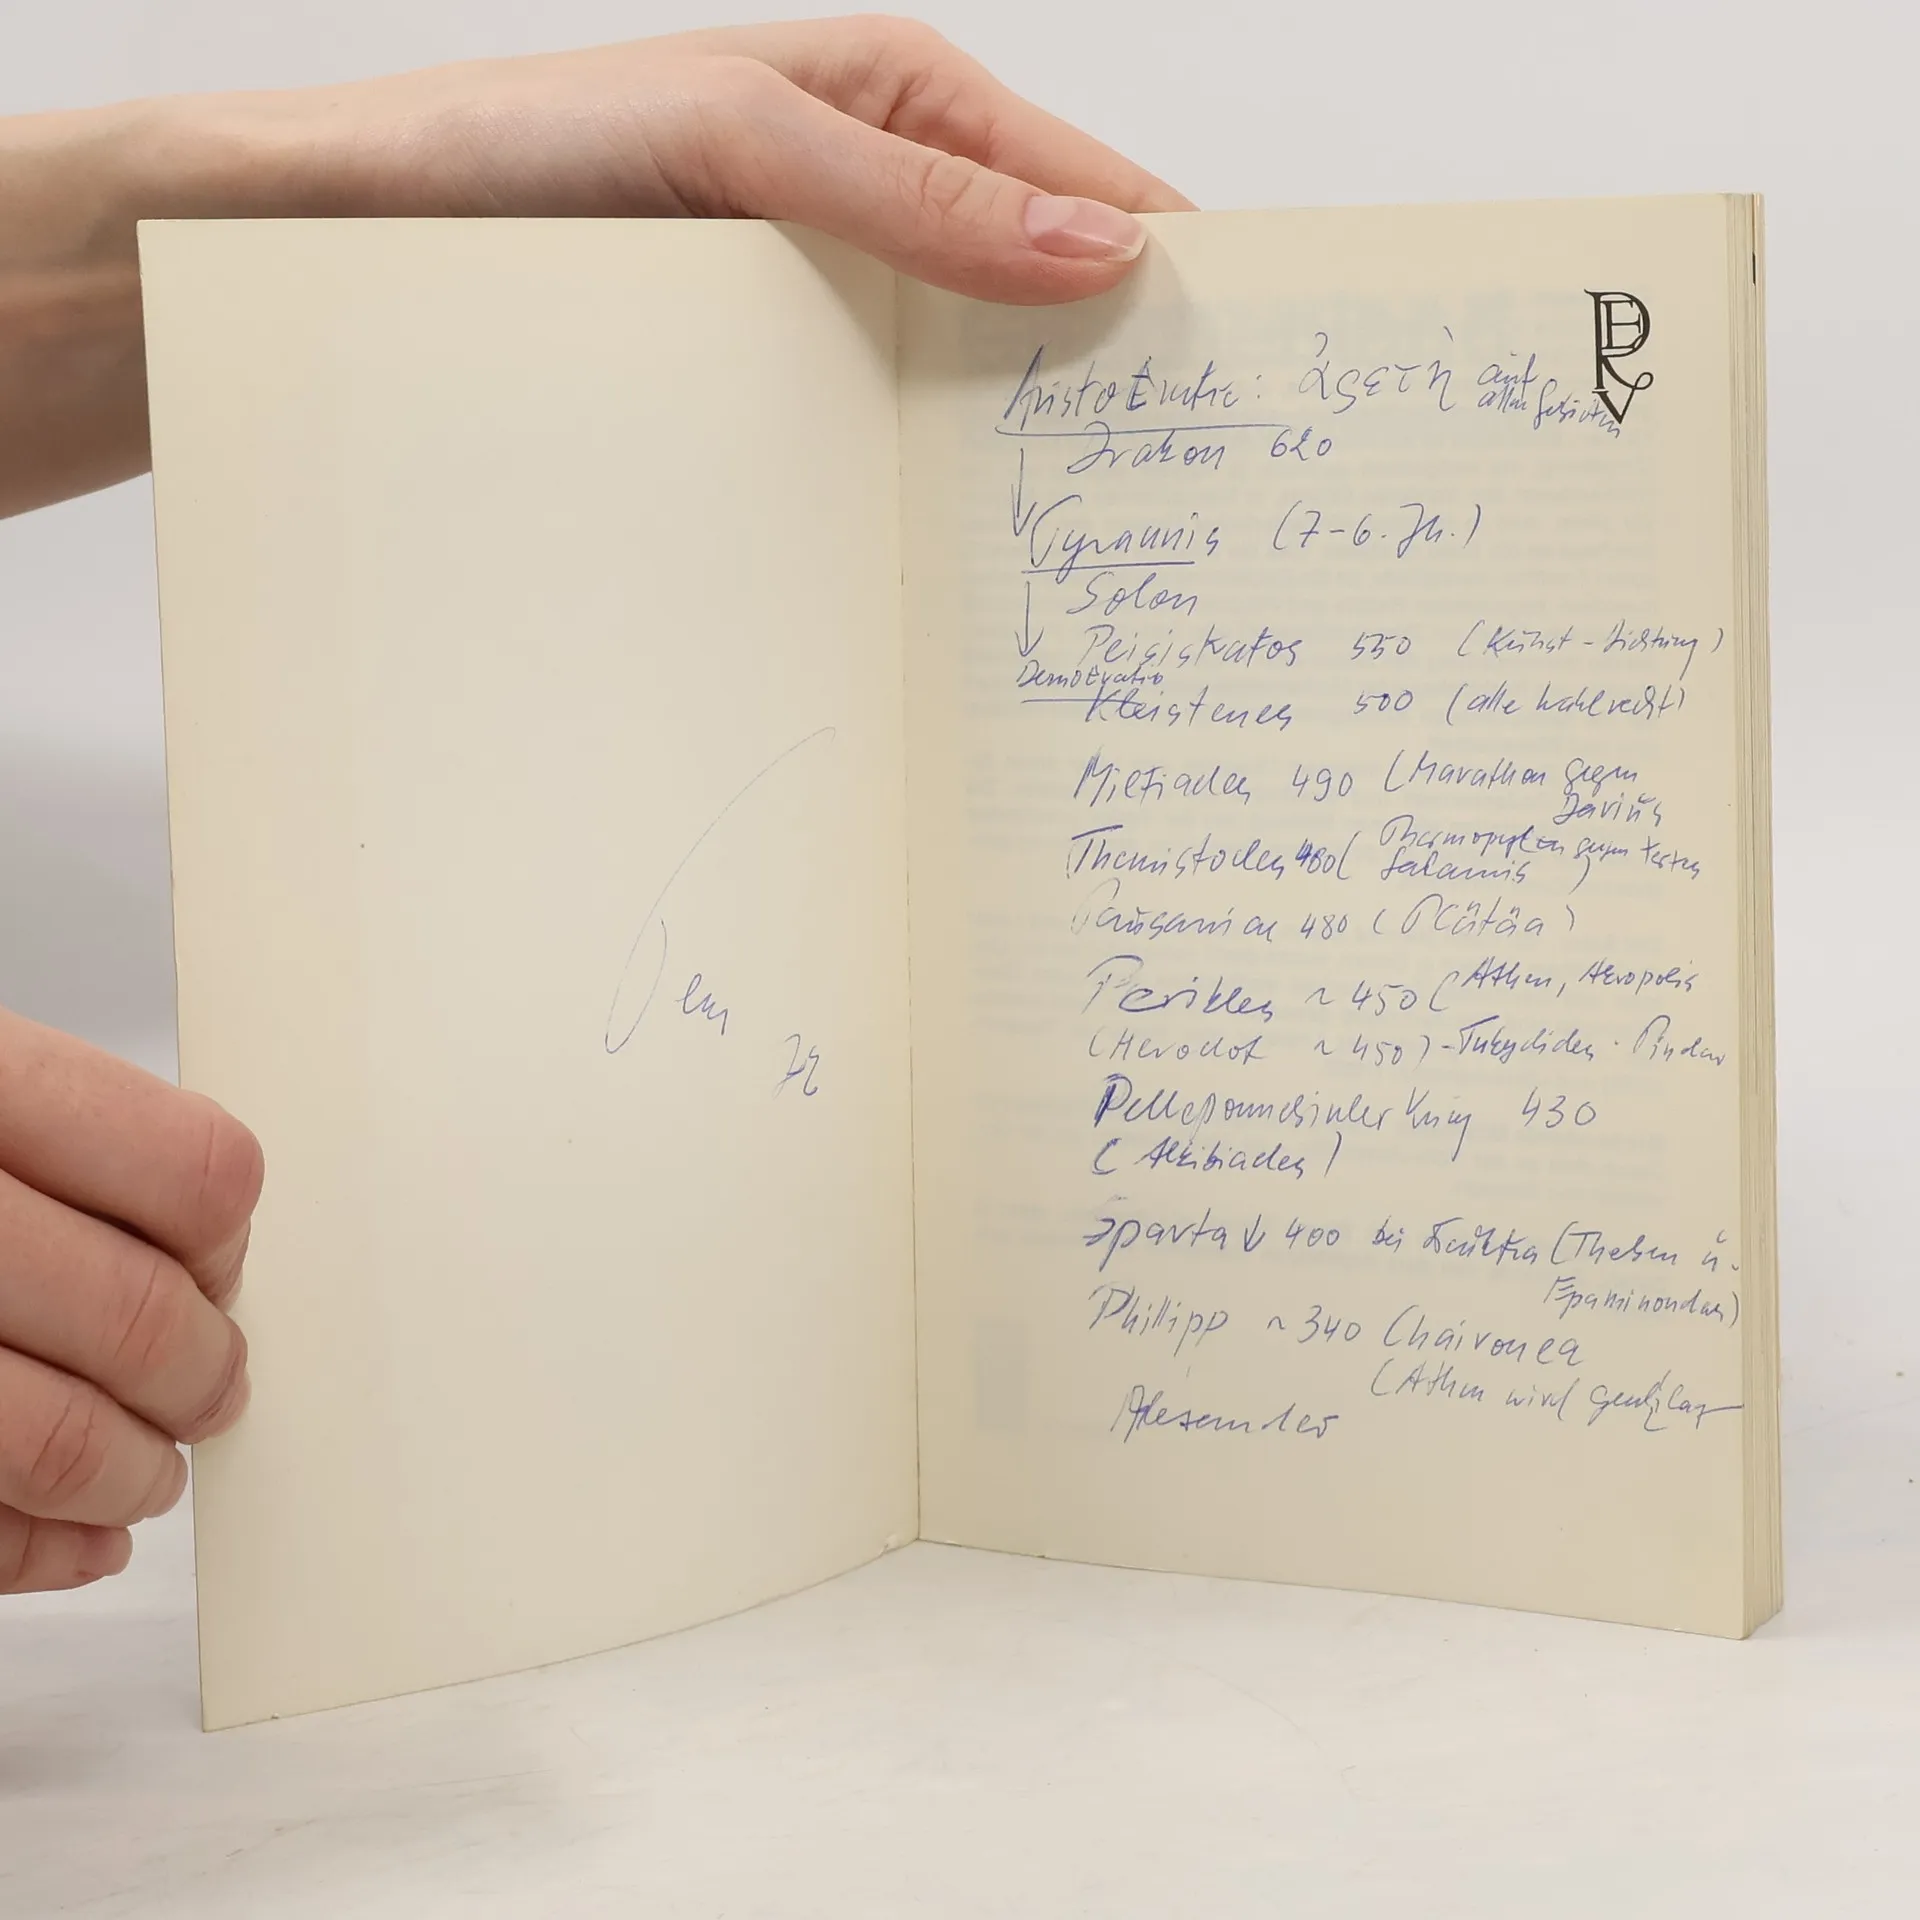 Aristokratie: ἀρετὴ auf
allen Gebieten
Drakon 620
Tyrannis (7-6. Jh.)
Solon
Peisistratos 550 (Kunst - Dichtung)
Demokratie
Kleistenes 500 (alle Wahlrecht)
Miltiades 490 (Marathon gegen
Darius
Themistocles 480 (Thermopylen gegen Xerxes
Salamis)
Pausanias 480 (Platäa)
Perikles ~ 450 (Athen, Akropolis
(Herodot ~ 450) - Tukydides · Pindar
Pelleponnesischer Krieg 430
(Alkibiades)
Sparta ↓ 400 bei Leuktra (Theben u.
Epaminondas)
Phillipp ~ 340 Chaironea
(Athen wird
Alexander